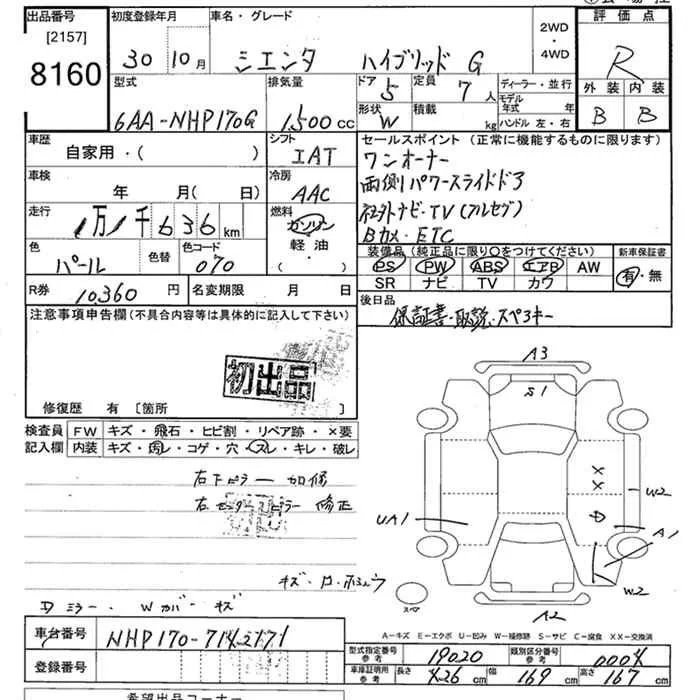 出品番号 初度登録年月 車名・グレード 2WD・4WD 評価点
[2157] 8160 30 10月 シエンタ ハイブリッド G R
型式 排気量 ドア 5 定員 7人 ディーラー・並行 外装 内装
6AA-NHP170G 1,500cc 形状 W 積載 kg モデル年式 年 ハンドル 左・右 B B
車歴 シフト セールスポイント (正常に機能するものに限ります)
自家用・( ) IAT ワンオーナー
車検 冷房 両側パワースライドドア
年 月( 日) AAC 社外ナビ・TV(フルセグ)
走行 燃料 Bカメ・ETC
1万1千636km ガソリン 軽油・( )
色 色替 色コード 装備品 (純正品に限り○をつけてください) 新車保証書
パール 070 PS PW ABS エアB AW 有・無
SR ナビ TV カワ
R券 10,360円 名変期限 月 日 後日品
注意事項申告欄(不具合内容等は具体的に記入して下さい) 保証書・取説・スペアキー
初出品
修復歴 有 [箇所 ]
検査員 FW キズ・飛石・ヒビ割・リペア跡・×要
記入欄 内装 キズ・汚レ・コゲ・穴・スレ・キレ・破レ
右下ピラー 加修
右センターピラー 修正
キズ・
Dミラー・Wカバーキズ
A3
S1
X
X
W2
UA1
A1
W2
スペア
A2
A-キズ E-エクボ U-凹み W-補修跡 S-サビ C-腐食 XX-交換済
車台番号 NHP170-7142171 型式指定番号 参考 19020 類別区分番号 参考 0004
登録番号 車庫証明用 参考 長さ 426cm 幅 169cm 高さ 167cm
希望出品コーナー